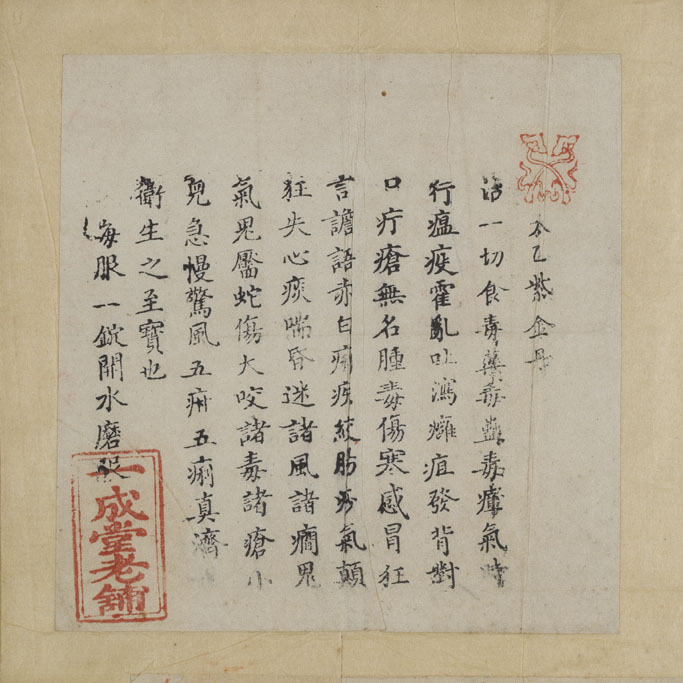 太乙紫金丹
治一切食毒藥毒蠱毒瘴氣時
行瘟疫霍亂吐瀉癰疽發背對
口疔瘡無名腫毒傷寒感冒狂
言譫語赤白痢疾絞腸痧氣顛
狂失心痰喘昏迷諸風諸癎鬼
氣鬼魘蛇傷犬咬諸毒諸瘡小
兒急慢驚風五疳五痢真濟
衛生之至寶也
每服一錠開水磨服
一成堂老舖